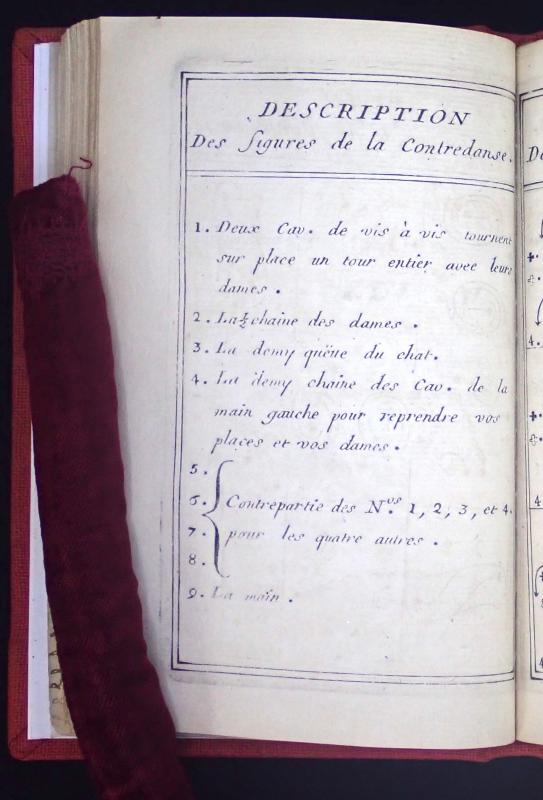 DESCRIPTION
Des figures de la Contredanse.
1. Deux Cav. de vis à vis tournent
sur place un tour entier avec leurs
dames.
2. La ½ chaine des dames.
3. La demy quëue du chat.
4. La demy chaine des Cav. de la
main gauche pour reprendre vos
places et vos dames.
5.
6. Contrepartie des Nos. 1, 2, 3, et 4.
7. pour les quatre autres.
8.
9. La main.